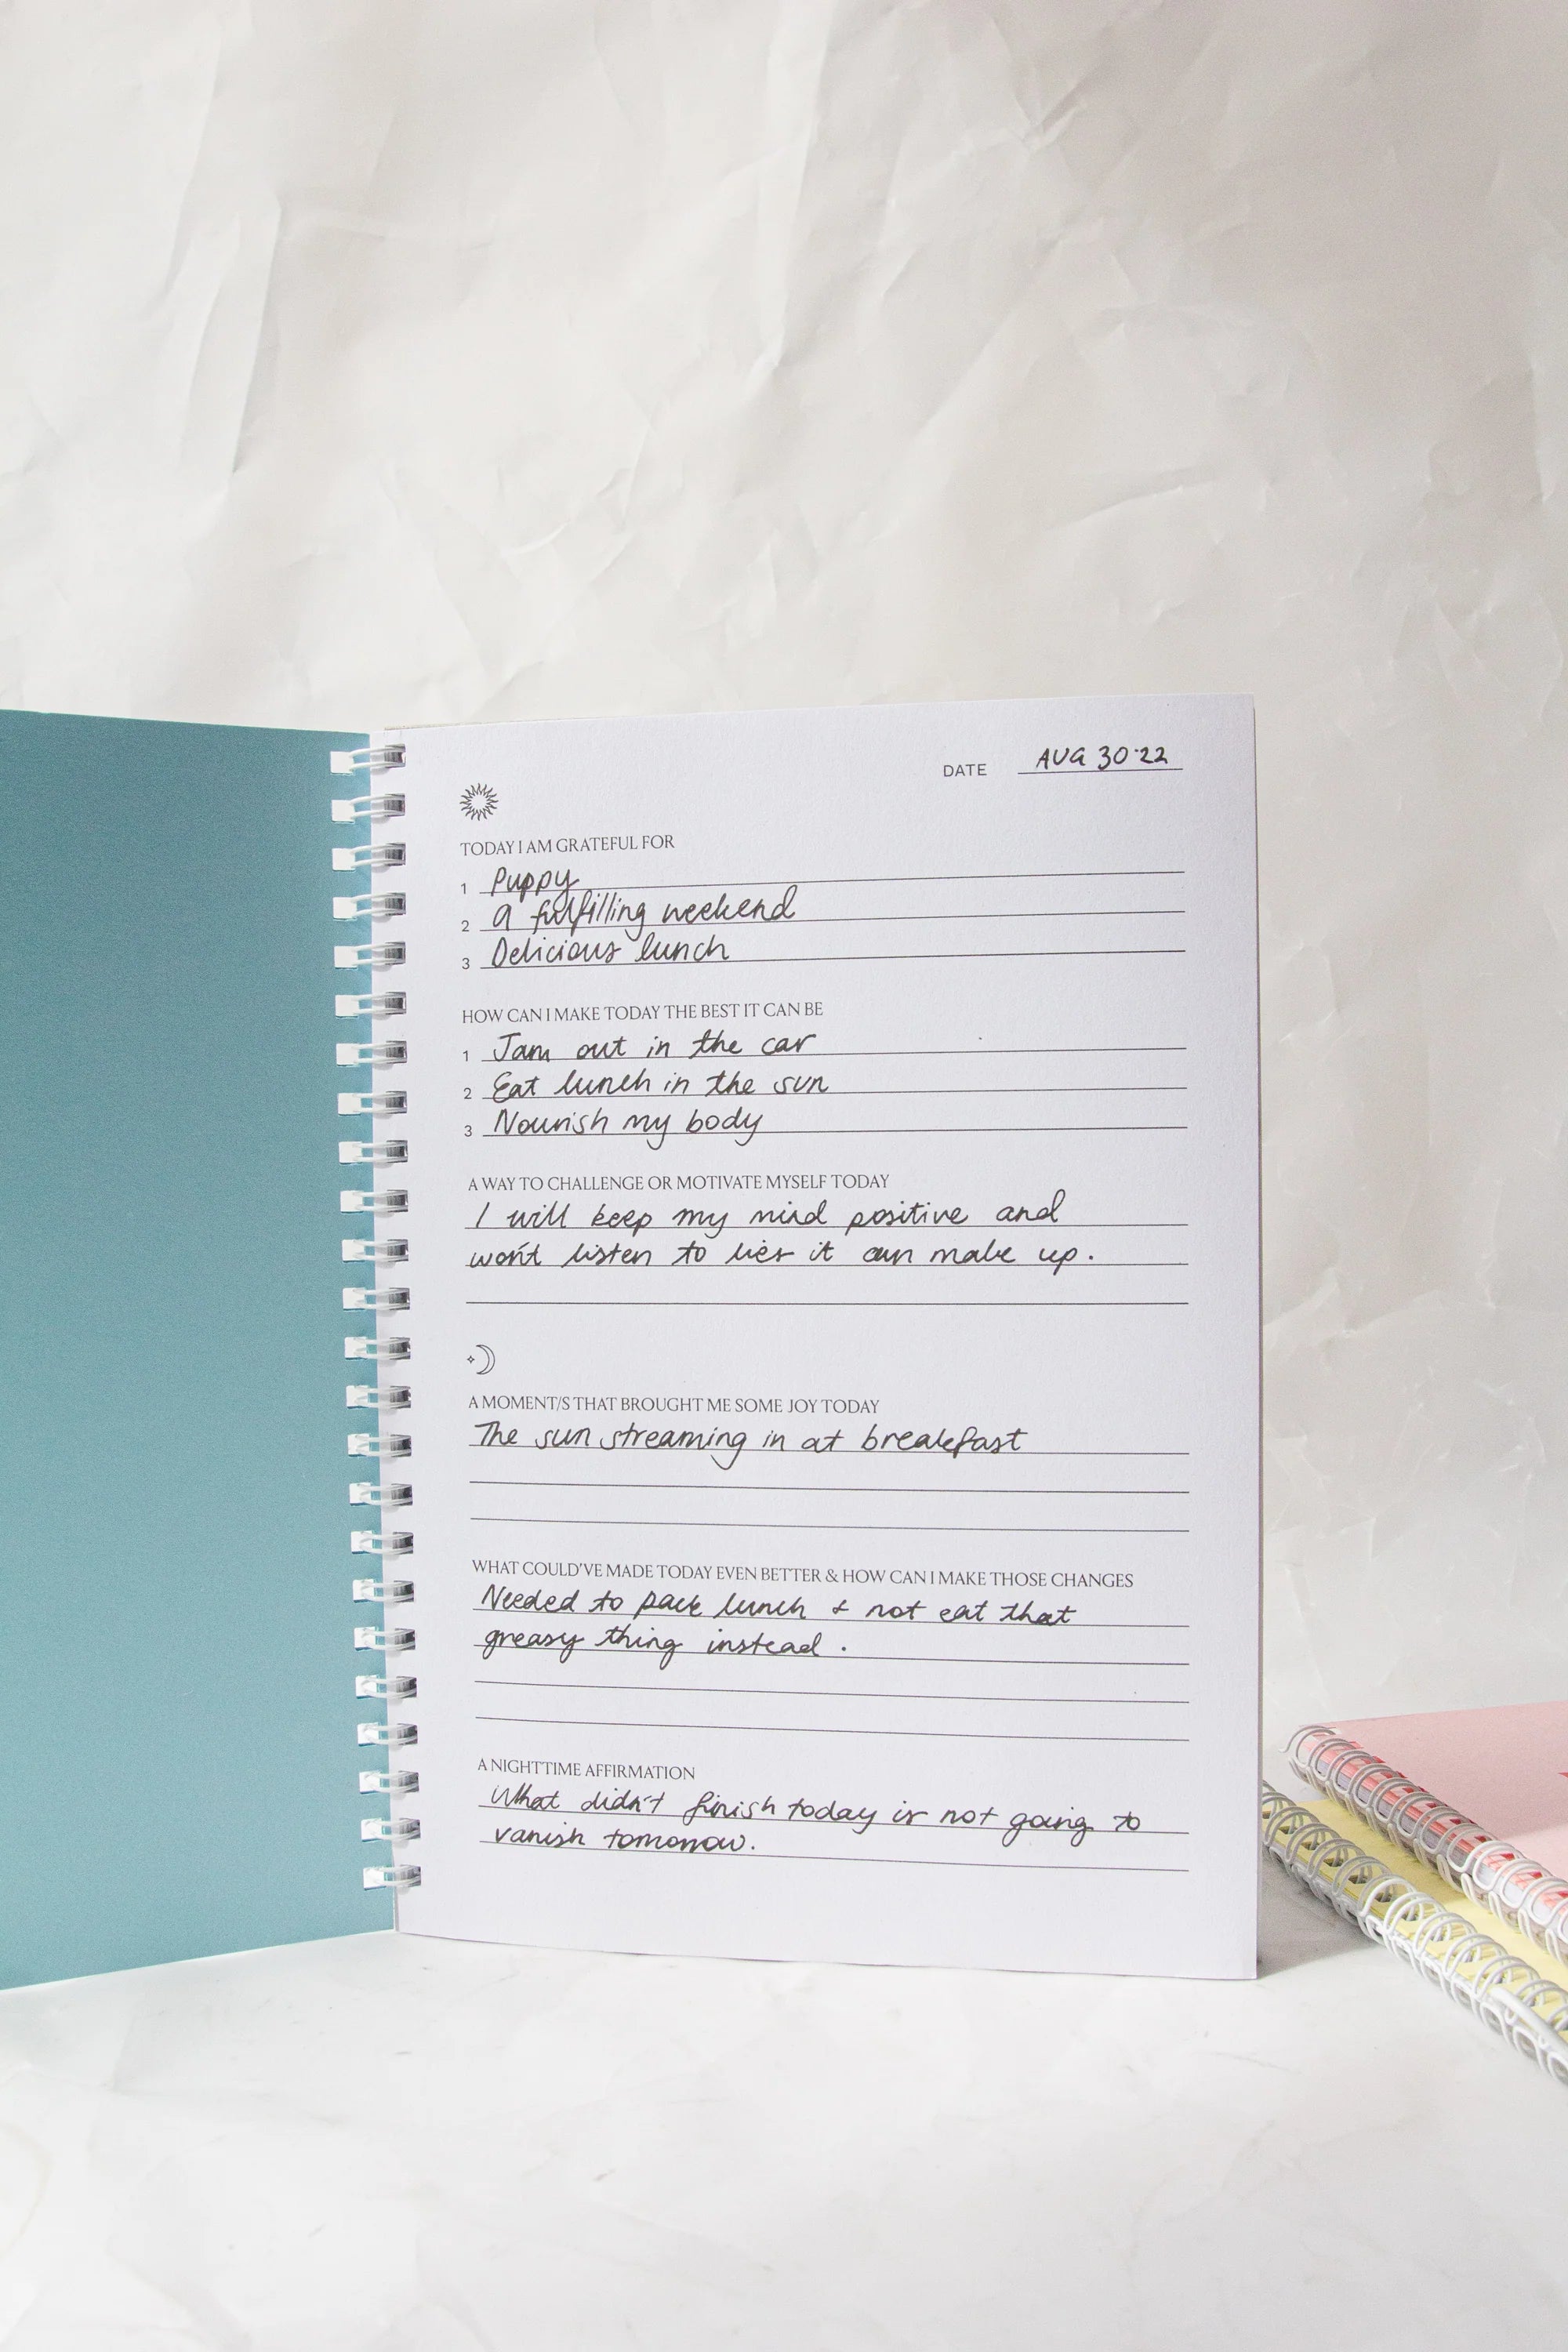 DATE AUG 30·22
TODAY I AM GRATEFUL FOR
1 Puppy
2 A fulfilling weekend
3 Delicious lunch
HOW CAN I MAKE TODAY THE BEST IT CAN BE
1 Jam out in the car
2 Eat lunch in the sun
3 Nourish my body
A WAY TO CHALLENGE OR MOTIVATE MYSELF TODAY
I will keep my mind positive and
won't listen to lies it can make up.
A MOMENT/S THAT BROUGHT ME SOME JOY TODAY
The sun streaming in at breakfast
WHAT COULD'VE MADE TODAY EVEN BETTER & HOW CAN I MAKE THOSE CHANGES
Needed to pack lunch & not eat that
greasy thing instead.
A NIGHTTIME AFFIRMATION
What didn't finish today is not going to
vanish tomorrow.